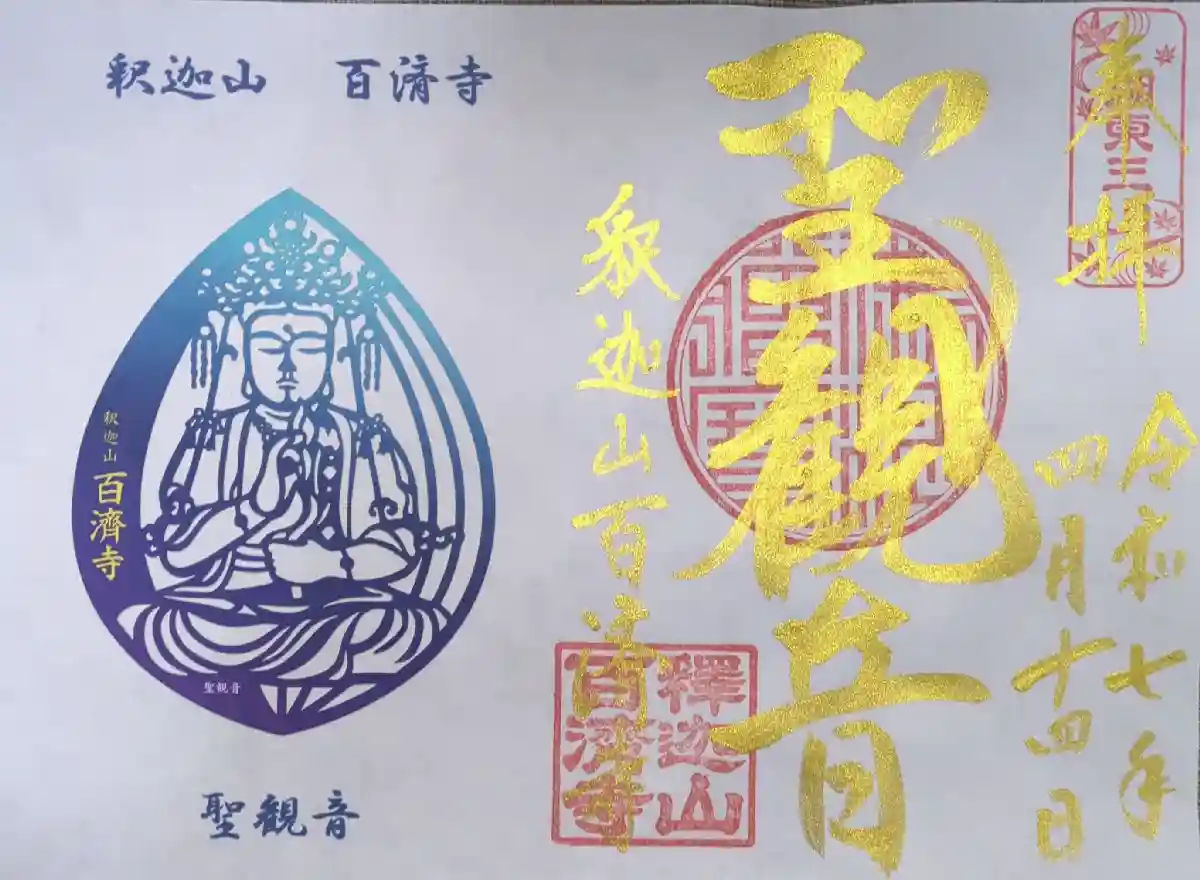 奉拝
湖東三山
令和七年
四月十四日
聖観音
釈迦山百済寺
釋迦山
百濟寺
釈迦山　百済寺
釈迦山
百濟寺
聖観音
聖観音